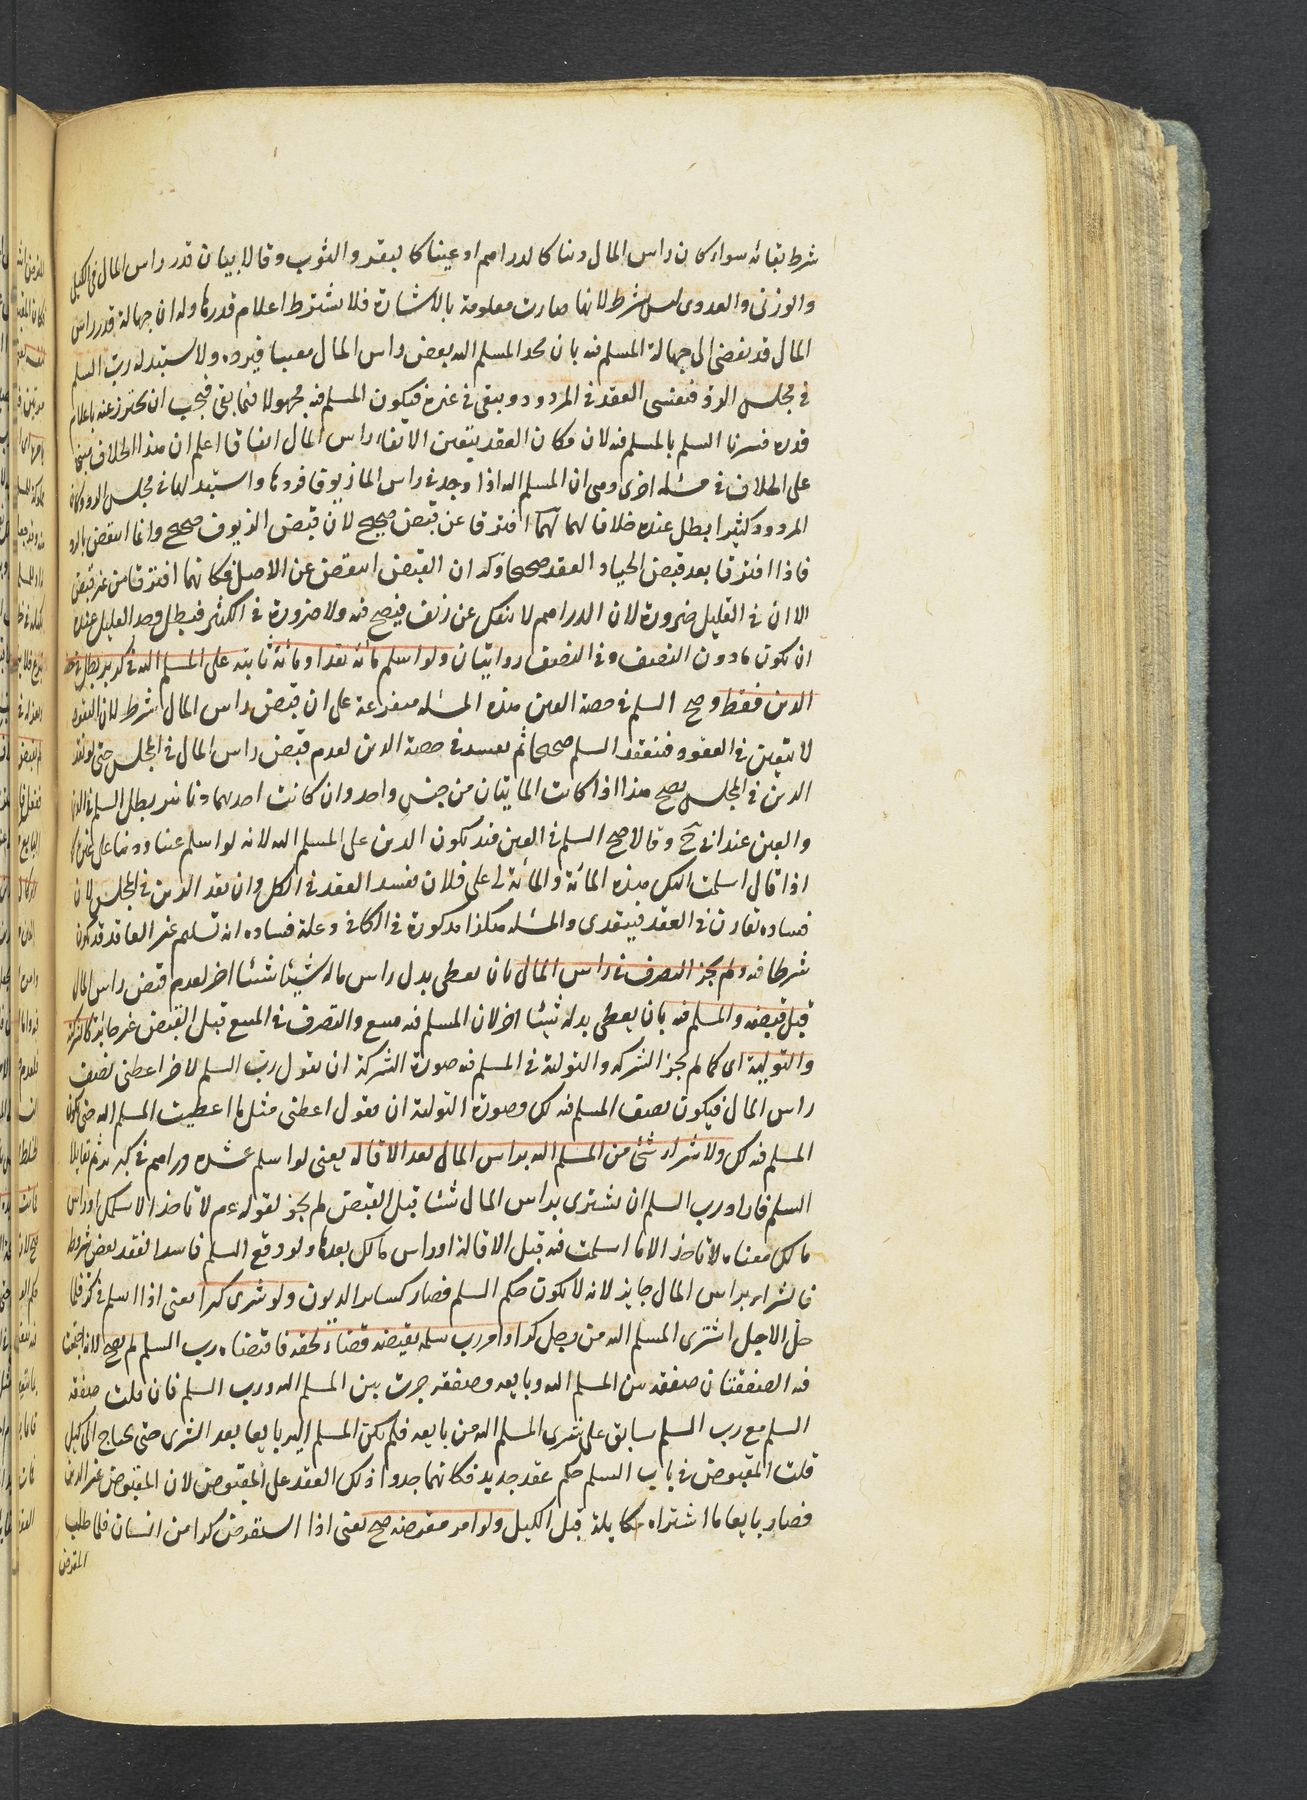 شرط بقائه سواء كان راس المال دينا كالدراهم او عينا كالبقر والثوب وقالا بيان قدر راس المال في الكيلي
والوزني والعددي ليس بشرط لانها صارت معلومة بالاشارة فلا يشترط اعلام قدرها وله ان جهالة قدر راس
المال قد يفضي الى جهالة المسلم فيه بان يجد المسلم اليه بعض راس المال معيبا فيرده ولا يستبدله رب السلم
في مجلس الرد فيفسخ العقد في المردود ويبقى في غيره فيكون المسلم فيه مجهولا فيما بقي فيجب ان يحترز عنه باعلام
قدره قيدنا السلم بالمسلم فيه لان مكان العقد يتعين لايفاء راس المال اتفاقا اعلم ان هذا الخلاف مبني
على الخلاف في مسئلة اخرى وهي ان المسلم اليه اذا وجد في راس المال زيوفا فردها واستبدلها في مجلس الرد وكان
المردود كثيرا بطل عنده خلافا لهما لهما افترقا عن قبض صحيح لان قبض الزيوف صحيح وانما انتقض بالرد
فاذا افترقا بعد قبض الجياد العقد صحيحا وله ان القبض انتقض عن الاصل فكانهما افترقا من غير قبض
الا ان في القليل ضرورة لان الدراهم لا ينفك عن زيف فيصح فيه ولا ضرورة في الكثير فيبطل وحد القليل عنده
ان يكون مادون النصف وفي النصف روايتان ولو اسلم مائة نقدا ومائة ثابتة على المسلم اليه في كر بر بطل في حصة
الدين فقط وصح السلم في حصة العين هذه المسئلة متفرعة على ان قبض راس المال شرط لان النقود
لا يتعين في العقود فينعقد السلم صحيحا ثم يفسد في حصة الدين لعدم قبض راس المال في المجلس حتى لو نقد
الدين في المجلس يصح هذا اذا كانت المايتان من جنس واحد وان كانت احديهما دنانير بطل السلم في الدين
والعين عند ابي ح وقالا صح السلم في العين قيد بكون الدين على المسلم اليه لانه لو اسلم عينا ودينا على غيره كما
اذا قال اسلمت اليك هذه المائة والمائة لي على فلان يفسد العقد في الكل وان نقد الدين في المجلس لان
فساده تقارن في العقد فيتعدى والمسئلة هكذا مذكورة في الكافي وعلة فساده انه تسليم غير العاقد قد يكون
شرطا فيه ولم يجز التصرف في راس المال بان يعطى بدل راس ماله شيئا شيئا اخر لعدم قبض راس المال
قبل قبضه والمسلم فيه بان يعطى بدله شيئا اخر لان المسلم فيه مبيع والتصرف في المبيع قبل القبض غير جائز كالشركة
والتولية اى كما لم يجز الشركة والتولية في المسلم فيه صورة الشركة ان يقول رب السلم لاخر اعطني نصف
راس المال فيكون نصف المسلم فيه لك وصورة التولية ان يقول اعطني مثل ما اعطيت المسلم اليه حتى يكون
المسلم فيه لك ولا شراء شئ من المسلم اليه براس المال بعد الاقالة يعني لو اسلم عشرة دراهم في كر بر ثم تقايلا
السلم فاراد رب السلم ان يشترى براس المال شيئا قبل القبض لم يجز لقوله عم لا تاخذ الا سلمك او راس
مالك معناه لا تاخذ الا ما اسلمت فيه قبل الاقالة او راس مالك بعدها ولو وقع السلم فاسدا لفقد بعض شروطه
فالشراء براس المال جايز لانه لا يكون حكم السلم فصار كساير الديون ولو شرى كرا يعنى اذا اسلم في كر فلما
حل الاجل اشترى المسلم اليه من رجل كرا وامر رب سلمه بقبضه قضاء لحقه فاقتضاه رب السلم لم يصح لانه اجتمعت
فيه الصفقتان صفقة بين المسلم اليه وبايعه وصفقة جرت بين المسلم اليه ورب السلم فان قلت صفقة
السلم مع رب السلم سابق على شرى المسلم اليه من بايعه فلم يكن المسلم اليه بايعا بعد الشرى حتى يحتاج الى كيل
قلت المقبوض في باب السلم حكم عقد جديد فكانهما جددا ذلك العقد على المقبوض لان المقبوض غير الدين
فصار بايعا ما اشتراه مكايلة قبل الكيل ولو امر مقرضه صح يعنى اذا استقرض كرا من انسان فلما طلب
المقرض